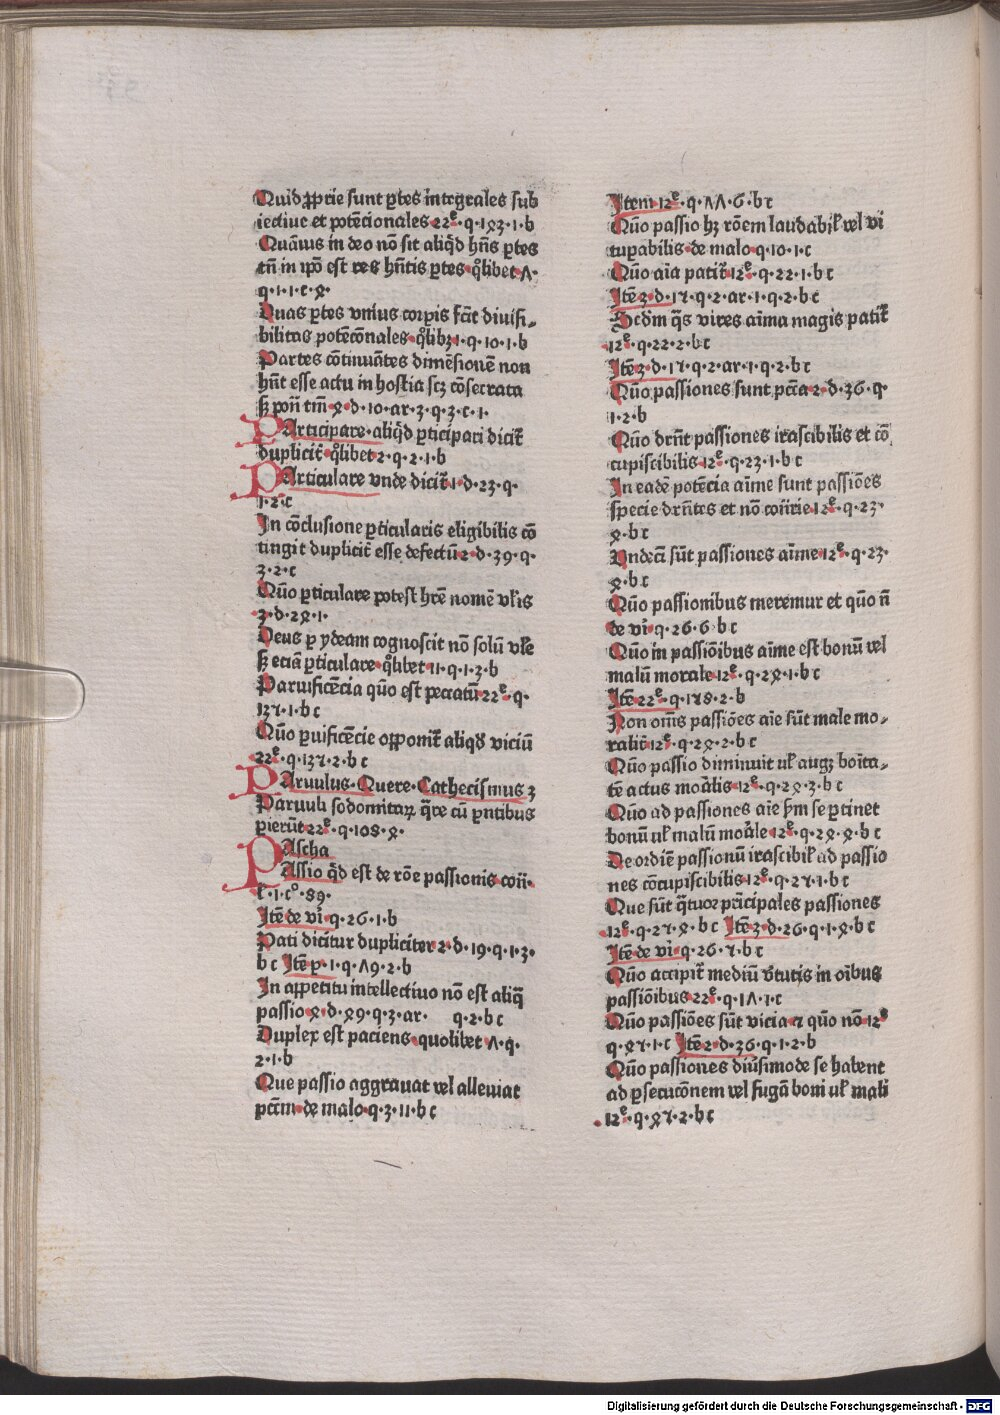 Quid ꝓprie sunt ꝑtes integrales sub
iectiue et potēcionales 22ᵉ·q·1ꝝ3·1·b
Quāuis in deo nō sit aliqᵈ hn̄s ꝑtes
tn̄ in ip̄o est res hn̄tis ꝑtes qͦlibet Ʌ·
q·1·1·c·ꝝ·
Duas ꝑtes vnius corpis fac̄t diuisi-
bilitas potēcōnales qͦlibꝫ 1·q·10·1·b
Partes cōtinuātes dimēsionē non
hn̄t esse actu in hostia scꝫ cōsecrata
sꝫ pōn tm̄ ꝝ·d·10·ar·3·q·3·c·1·
PArticipare·aliqᵈ ꝑticipari dicit̄
duplicit̄ qͦlibet 2·q·2·1·b
PArticulare vnde dicit̄ 1·d·23·q·
1·2·c
In cōclusione ꝑticularis eligibilis cō
tingit duplicit̄ esse defectū 2·d·39·q·
3·2·c
Quō ꝑticulare potest hr̄e nomē vl̄is
3·d·2ꝝ·1·
Deus ꝑ ydeam cognoscit nō solū vl̄e
sꝫ eciā ꝑticulare qͦlibet 11·q·1·3·b
Paruificēcia quō est peccatū 22ᵉ·q·
137·1·b c
Quō ꝑuificēcie opponit̄ aliqᵈ viciū
22ᵉ·q·137·2·b c
PAruulus·Quere·Cathecismus 3
Paruuli sodomitaꝝ q̄re cū pn̄tibus
pierūt 22ᵉ·q·108·ꝝ·
PAscha
PAssio qᵈ est de rōe passionis con̄·
l̄·1·cͦ·89·
Itē de vi·q·26·1·b
Pati dicitur dupliciter 2·d·19·q·1·3·
b c Itē p·1·q·Ʌ9·2·b
In appetitu intellectiuo nō est aliq̄
passio ꝝ·d·ꝝ9·q·3·ar· q·2·b c
Duplex est paciens quolibet Ʌ·q·
2·1·b
Que passio aggrauat vel alleuiat
pctm̄ de malo·q·3·11·b c
Item 12ᵉ·q·ɅɅ·6·b c
Quō passio hꝫ rōem laudabil̄ vel vi
tuꝑabilis·de malo·q·10·1·c
Quō aīa patit̄ 12ᵉ·q·22·1·b c
Itē 3·d·17·q·2·ar·1·q·2·b c
Scdm̄ q̄s vires aīma magis patit̄
12ᵉ·q·22·2·b c
Itē 3·d·17·q·2·ar·1·q·2·b c
Quō passiones sunt pctā 2·d·36·q·
1·2·b
Quō drn̄t passiones irascibilis et cō
cupiscibilis 12ᵉ·q·23·1·b c
In eadē potēcia aīme sunt passiōes
specie drn̄tes et nō con̄rie 12ᵉ·q·23·
ꝝ·b c
Vndeci sūt passiones aīme 12ᵉ·q·23·
ꝝ·b c
Quō passionibus meremur et quō n̄
de vi·q·26·6·b c
Quō in passiōibus aīme est bonū vel
malū morale 12ᵉ·q·2ꝝ·1·b c
Itē 22ᵉ·q·178·2·b
Non om̄s passiōes aīe sūt male mo-
ralit̄ 12ᵉ·q·2ꝝ·2·b c
Quō passio diminuit ul̄ augꝫ boīta-
tē actus moālis 12ᵉ·q·2ꝝ·3·b c
Quō ad passiones aīe ꝑm se ꝑtinet
bonū ul̄ malū moāle 12ᵉ·q·2ꝝ·ꝝ·b c
De ordīe passionū irascibil̄ ad passio
nes cōcupiscibilis 12ᵉ·q·27·1·b c
Que sūt q̄tuor pͥncipales passiones
12ᵉ·q·27·ꝝ·b c Itē 3·d·26·q·1·ꝝ·b c
Itē de vi·q·26·7·b c
Quō accipit̄ mediū v̄tutis in oībus
passiōibus 22ᵉ·q·1Ʌ·1·c
Quō passiōes sūt vicia ⁊ quō nō 12ᵉ
q·ꝝ7·1·c Itē 2·d·36·q·1·2·b
Quō passiones diūsimode se habent
ad ꝑsecucōnem vel fugā boni ul̄ mali
12ᵉ·q·ꝝ7·2·b c
Digitalisierung gefördert durch die Deutsche Forschungsgemeinschaft · DFG